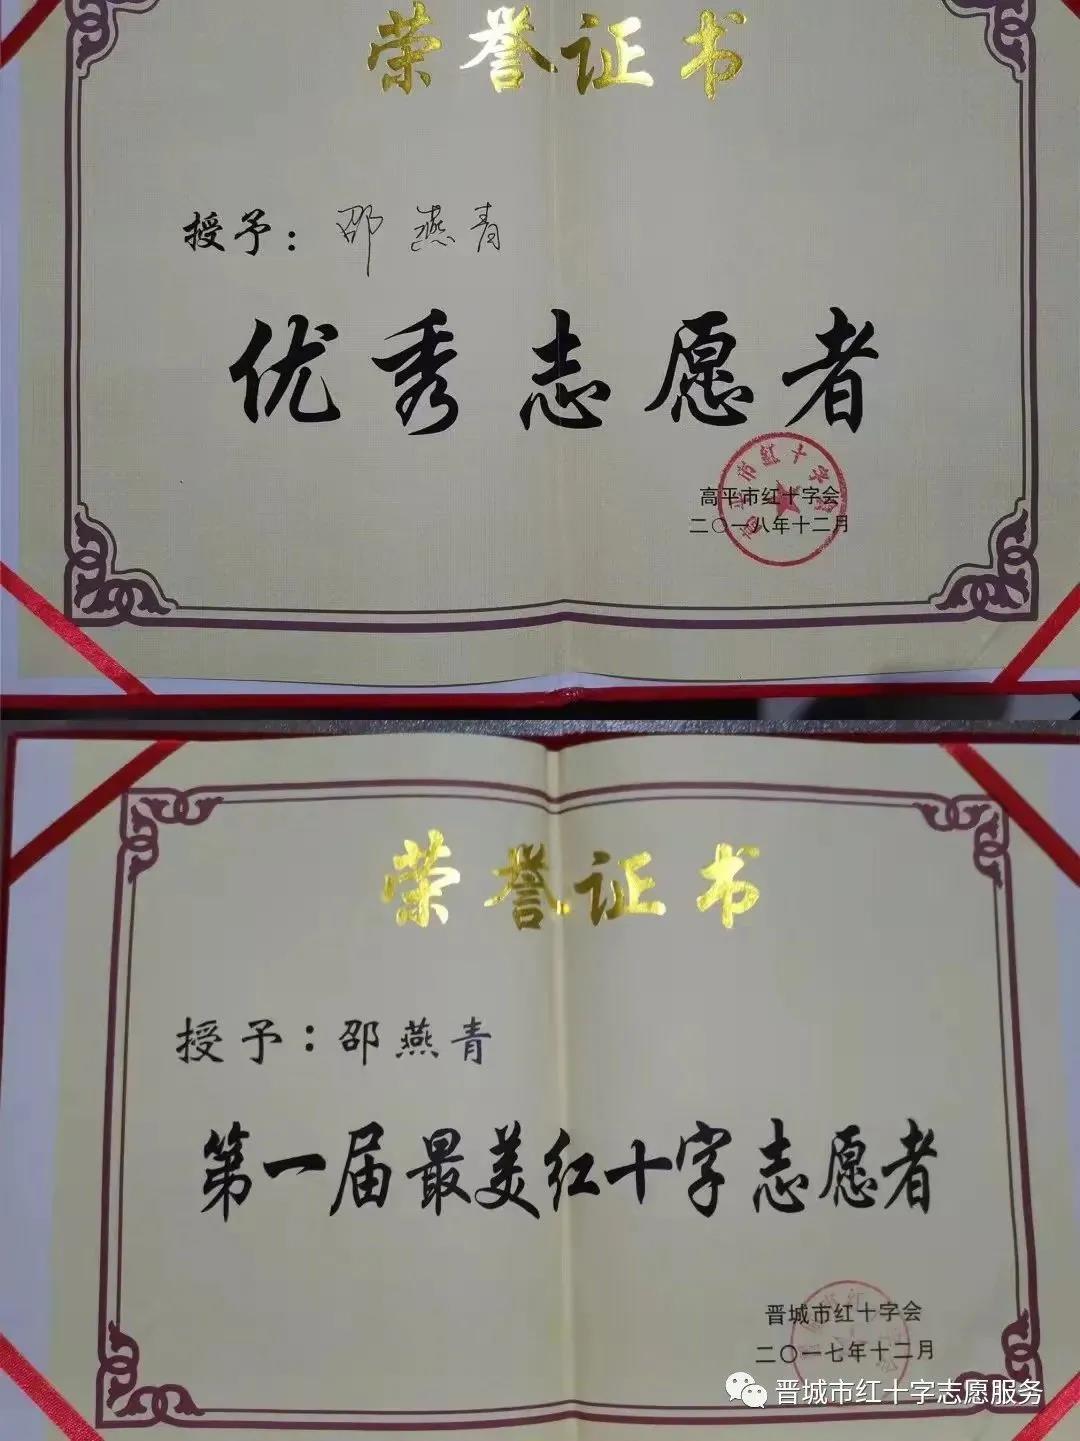 荣誉证书
授予：邵燕青
优秀志愿者
高平市红十字会
二〇一八年十二月
荣誉证书
授予：邵燕青
第一届最美红十字志愿者
晋城市红十字会
二〇一七年十二月
晋城市红十字志愿服务